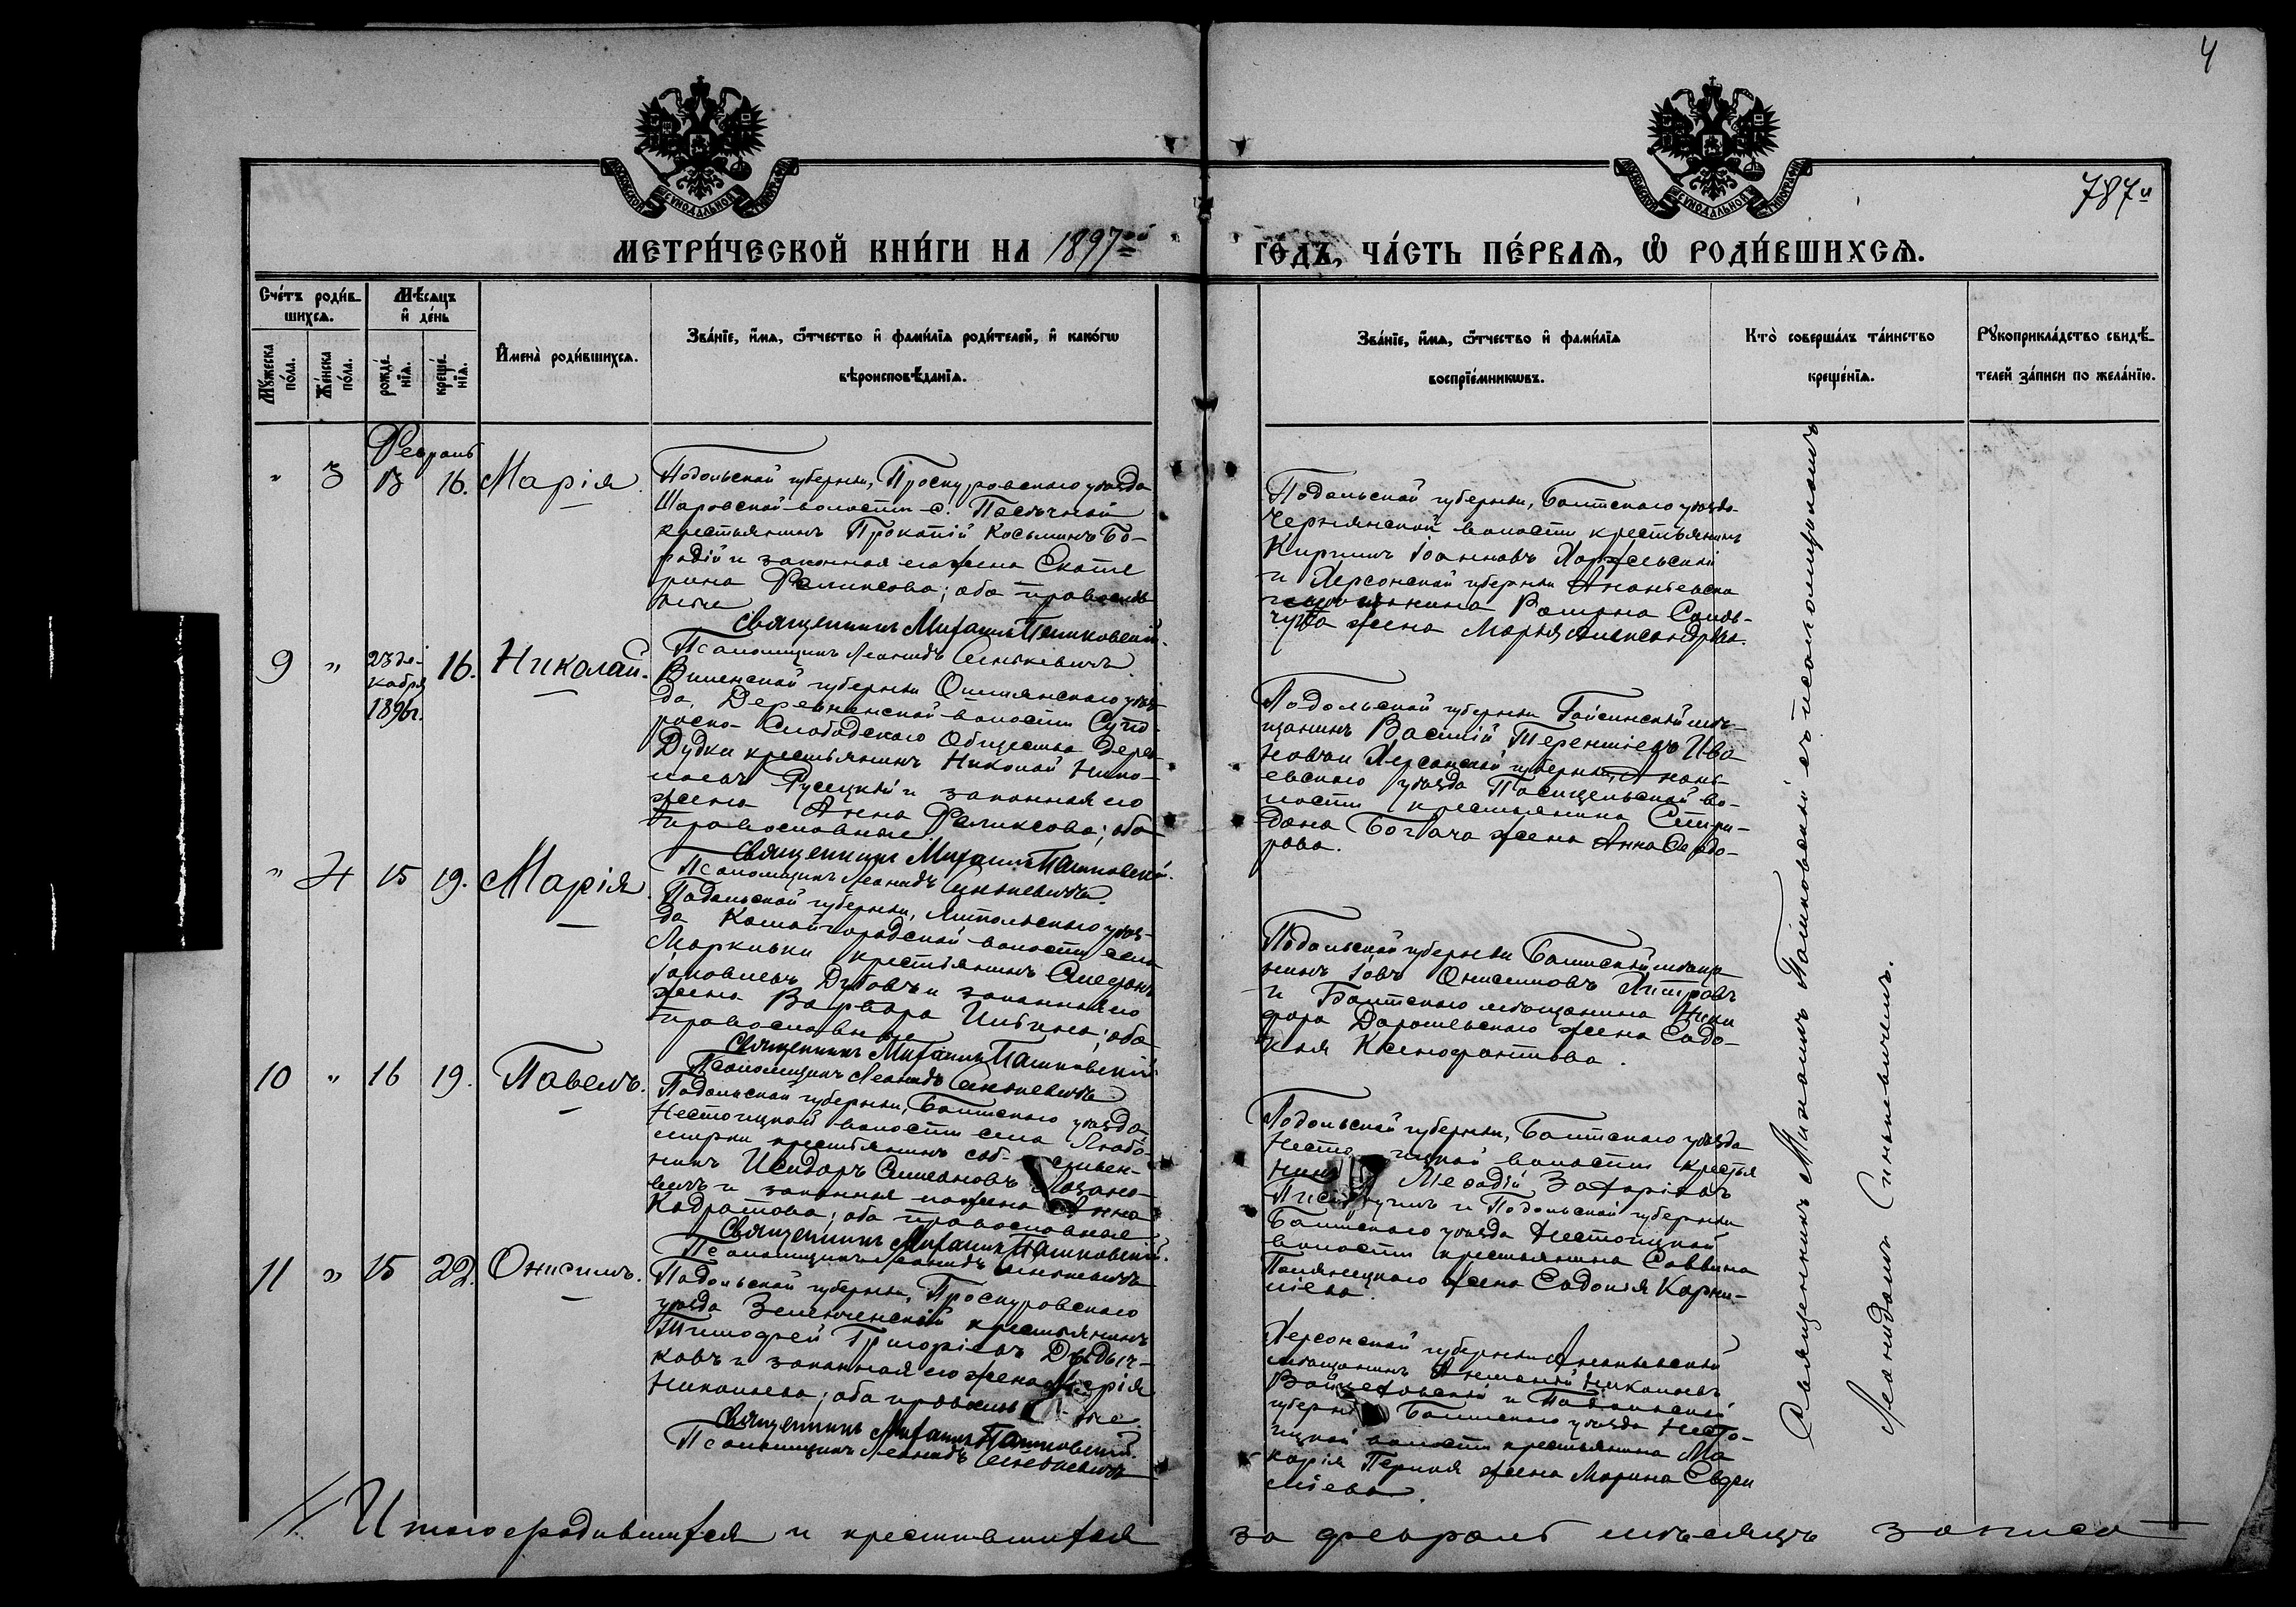 4
МОСКОВСКОЙ СѴНОДАЛЬНОЙ ТИПОГРАФІИ
МОСКОВСКОЙ СѴНОДАЛЬНОЙ ТИПОГРАФІИ
787
МЕТРИ́ЧЕСКОЙ КНИ́ГИ НА 1897
ГОДЪ, ЧА́СТЬ ПЕ́РВАѦ, Ѡ РОДИ́ВШИХСѦ.
Сче́тъ роди́в-
шихсѧ.
Мѣ́сѧцъ
и҆ де́нь
Мꙋ́жеска
по́ла.
Же́нска
по́ла.
рожде́-
нїѧ.
креще́-
нїѧ.
И҆мена̀ роди́вшихсѧ.
Зва́нїе, и҆́мѧ, ѻ҆́тчество и҆ фами́лїѧ роди́телей, и҆ како́гѡ
вѣроисповѣ́данїѧ.
Зва́нїе, и҆́мѧ, ѻ҆́тчество и҆ фами́лїѧ
воспрїе́мникѡвъ.
Кто̀ соверша́лъ та́инство
креще́нїѧ.
Рꙋкоприкла́дство свидѣ́-
телей за́писи по жела́нїю.
Февраль
" 3 13 16. Марія.
Подольской губерніи, Проскуровскаго уѣзда
Шаровской волости с. Пасѣчной
крестьянинъ Прокопій Косьминъ Бо-
родій и законная его жена Екате
рина Феликсова; оба православ
ные
Священникъ Михаилъ Пашковскій.
Псаломщикъ Леонидъ Синькевичъ
Подольской губерніи, Балтскаго уѣзда
Чернянской волости крестьянинъ
Кириллъ Іоанновъ
и Херсонской губерніи Ананьевска
го мѣщанина
жена Марья Александрова.
9 " 23 де-
кабря
1896г. 16. Николай.
Виленской губерніи Ошмянскаго уѣз-
да, Деревненской волости
Слободскаго Общества дерев.
Дудки крестьянинъ Николай Нико-
лаевъ Русецкій и законная его
жена Анна Феликсова; оба
православные
Священникъ Михаилъ Пашковскій.
Псаломщикъ Леонидъ Синькевичъ.
Подольской губерніи Гайсинскій мѣ-
щанинъ Василій Терентіевъ Ива-
новъ и Херсонской губерніи, Анань-
евскаго уѣзда Пасицельской во-
лости крестьянина Спири-
дона Богача жена Анна Ѳедо-
рова.
" 4 15 19. Марія.
Подольской губерніи, Литольскаго уѣз-
да Копайгородской волости села
Марковки крестьянинъ Стефанъ
Іаковлевъ Дубовъ и законная его
жена Варвара Ильина; оба
православные
Священникъ Михаилъ Пашковскій
Псаломщикъ Леонидъ Синькевичъ
Подольской губерніи Балтскій мѣща-
нинъ Іовъ Онисимовъ
и Балтскаго мѣщанина Ники
фора Дарашевскаго жена Евдо-
кія Ксенофонтова.
10 " 16 19. Павелъ.
Подольской губерніи, Балтскаго уѣзда
Нестоицкой волости села Любо-
мирки крестьянинъ собственни-
никъ Исидоръ Симеоновъ
и законная его жена Анна
Кодратова; оба православные
Священникъ Михаилъ Пашковскій.
Псаломщикъ Леонидъ Синькевичъ
Подольской губерніи, Балтскаго уѣзда
Несто ицкой волости крестья
нинъ Меѳодій Захаріевъ
и Подольской губерніи
Балтскаго уѣзда Нестоицкой
волости крестьянина Саввина
жена Евдокія Корни-
ліева.
11 " 15 22. Онисимъ.
Подольской губерніи, Проскуровскаго
уѣзда крестьянинъ
Тимофей Григоріевъ
и законная его жена Марія
Николаева; оба православ ные
Священникъ Михаилъ Пашковскій.
Псаломщикъ Леонидъ Синькевичъ
Херсонской губерніи Ананьевскій
мѣщанинъ Николаевъ
Войцеховскій и Подольской
губерніи Балтскаго уѣзда Несто-
ицкой волости крестьянина Ма
карія жена Марина Евфи
міева.
Священникъ Михаилъ Пашковскій съ псаломщикомъ
Леонидомъ Синькевичемъ.
Итого родившихся и крестившихся за февраль мѣсяцъ записа